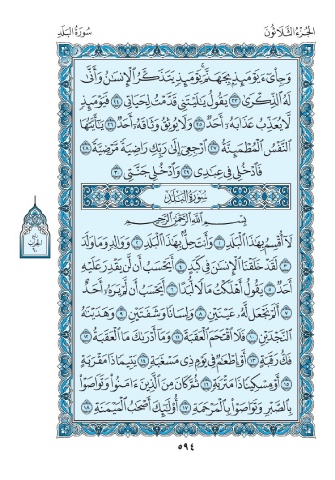 الجزء الثلاثون
سورة البلد
وَجِاْىٓءَ يَوْمَئِذٍۭ بِجَهَنَّمَ ۚ يَوْمَئِذٍ يَتَذَكَّرُ ٱلْإِنسَٰنُ وَأَنَّىٰ
لَهُ ٱلذِّكْرَىٰ ٢٣ يَقُولُ يَٰلَيْتَنِى قَدَّمْتُ لِحَيَاتِى ٢٤ فَيَوْمَئِذٍ
لَّا يُعَذِّبُ عَذَابَهُۥٓ أَحَدٌ ٢٥ وَلَا يُوثِقُ وَثَاقَهُۥٓ أَحَدٌ ٢٦ يَٰٓأَيَّتُهَا
ٱلنَّفْسُ ٱلْمُطْمَئِنَّةُ ٢٧ ٱرْجِعِىٓ إِلَىٰ رَبِّكِ رَاضِيَةً مَّرْضِيَّةً ٢٨
فَٱدْخُلِى فِى عِبَٰدِى ٢٩ وَٱدْخُلِى جَنَّتِى ٣٠
سورة البلد
بِسْمِ ٱللَّهِ ٱلرَّحْمَٰنِ ٱلرَّحِيمِ
لَآ أُقْسِمُ بِهَٰذَا ٱلْبَلَدِ ١ وَأَنتَ حِلٌّۢ بِهَٰذَا ٱلْبَلَدِ ٢ وَوَالِدٍ وَمَا وَلَدَ
٣ لَقَدْ خَلَقْنَا ٱلْإِنسَٰنَ فِى كَبَدٍ ٤ أَيَحْسَبُ أَن لَّن يَقْدِرَ عَلَيْهِ
أَحَدٌ ٥ يَقُولُ أَهْلَكْتُ مَالًا لُّبَدًا ٦ أَيَحْسَبُ أَن لَّمْ يَرَهُۥٓ أَحَدٌ
٧ أَلَمْ نَجْعَل لَّهُۥ عَيْنَيْنِ ٨ وَلِسَانًا وَشَفَتَيْنِ ٩ وَهَدَيْنَٰهُ
ٱلنَّجْدَيْنِ ١٠ فَلَا ٱقْتَحَمَ ٱلْعَقَبَةَ ١١ وَمَآ أَدْرَىٰكَ مَا ٱلْعَقَبَةُ ١٢
فَكُّ رَقَبَةٍ ١٣ أَوْ إِطْعَٰمٌ فِى يَوْمٍ ذِى مَسْغَبَةٍ ١٤ يَتِيمًا ذَا مَقْرَبَةٍ
١٥ أَوْ مِسْكِينًا ذَا مَتْرَبَةٍ ١٦ ثُمَّ كَانَ مِنَ ٱلَّذِينَ ءَامَنُوا۟ وَتَوَاصَوْا۟
بِٱلصَّبْرِ وَتَوَاصَوْا۟ بِٱلْمَرْحَمَةِ ١٧ أُو۟لَٰٓئِكَ أَصْحَٰبُ ٱلْمَيْمَنَةِ ١٨
٥٩٤